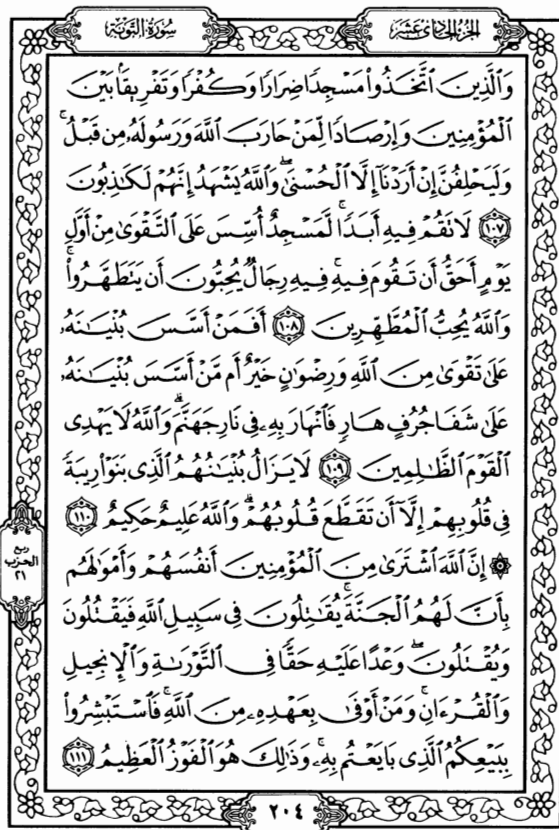 الجزء الحادي عشر
سورة التوبة
وَٱلَّذِينَ ٱتَّخَذُوا۟ مَسْجِدًا ضِرَارًا وَكُفْرًا وَتَفْرِيقًۢا بَيْنَ
ٱلْمُؤْمِنِينَ وَإِرْصَادًا لِّمَنْ حَارَبَ ٱللَّهَ وَرَسُولَهُۥ مِن قَبْلُ ۚ
وَلَيَحْلِفُنَّ إِنْ أَرَدْنَآ إِلَّا ٱلْحُسْنَىٰ ۖ وَٱللَّهُ يَشْهَدُ إِنَّهُمْ لَكَٰذِبُونَ
﴿١٠٧﴾ لَا تَقُمْ فِيهِ أَبَدًا ۚ لَّمَسْجِدٌ أُسِّسَ عَلَى ٱلتَّقْوَىٰ مِنْ أَوَّلِ
يَوْمٍ أَحَقُّ أَن تَقُومَ فِيهِ ۚ فِيهِ رِجَالٌ يُحِبُّونَ أَن يَتَطَهَّرُوا۟ ۚ
وَٱللَّهُ يُحِبُّ ٱلْمُطَّهِّرِينَ ﴿١٠٨﴾ أَفَمَنْ أَسَّسَ بُنْيَٰنَهُۥ
عَلَىٰ تَقْوَىٰ مِنَ ٱللَّهِ وَرِضْوَٰنٍ خَيْرٌ أَم مَّنْ أَسَّسَ بُنْيَٰنَهُۥ
عَلَىٰ شَفَا جُرُفٍ هَارٍ فَٱنْهَارَ بِهِۦ فِى نَارِ جَهَنَّمَ ۗ وَٱللَّهُ لَا يَهْدِى
ٱلْقَوْمَ ٱلظَّٰلِمِينَ ﴿١٠٩﴾ لَا يَزَالُ بُنْيَٰنُهُمُ ٱلَّذِى بَنَوْا۟ رِيبَةً
فِى قُلُوبِهِمْ إِلَّآ أَن تَقَطَّعَ قُلُوبُهُمْ ۗ وَٱللَّهُ عَلِيمٌ حَكِيمٌ ﴿١١٠﴾
۞ إِنَّ ٱللَّهَ ٱشْتَرَىٰ مِنَ ٱلْمُؤْمِنِينَ أَنفُسَهُمْ وَأَمْوَٰلَهُم
بِأَنَّ لَهُمُ ٱلْجَنَّةَ ۚ يُقَٰتِلُونَ فِى سَبِيلِ ٱللَّهِ فَيَقْتُلُونَ
وَيُقْتَلُونَ ۖ وَعْدًا عَلَيْهِ حَقًّا فِى ٱلتَّوْرَىٰةِ وَٱلْإِنجِيلِ
وَٱلْقُرْءَانِ ۚ وَمَنْ أَوْفَىٰ بِعَهْدِهِۦ مِنَ ٱللَّهِ ۚ فَٱسْتَبْشِرُوا۟
بِبَيْعِكُمُ ٱلَّذِى بَايَعْتُم بِهِۦ ۚ وَذَٰلِكَ هُوَ ٱلْفَوْزُ ٱلْعَظِيمُ ﴿١١١﴾
ربع
الحزب
٢١
٢٠٤